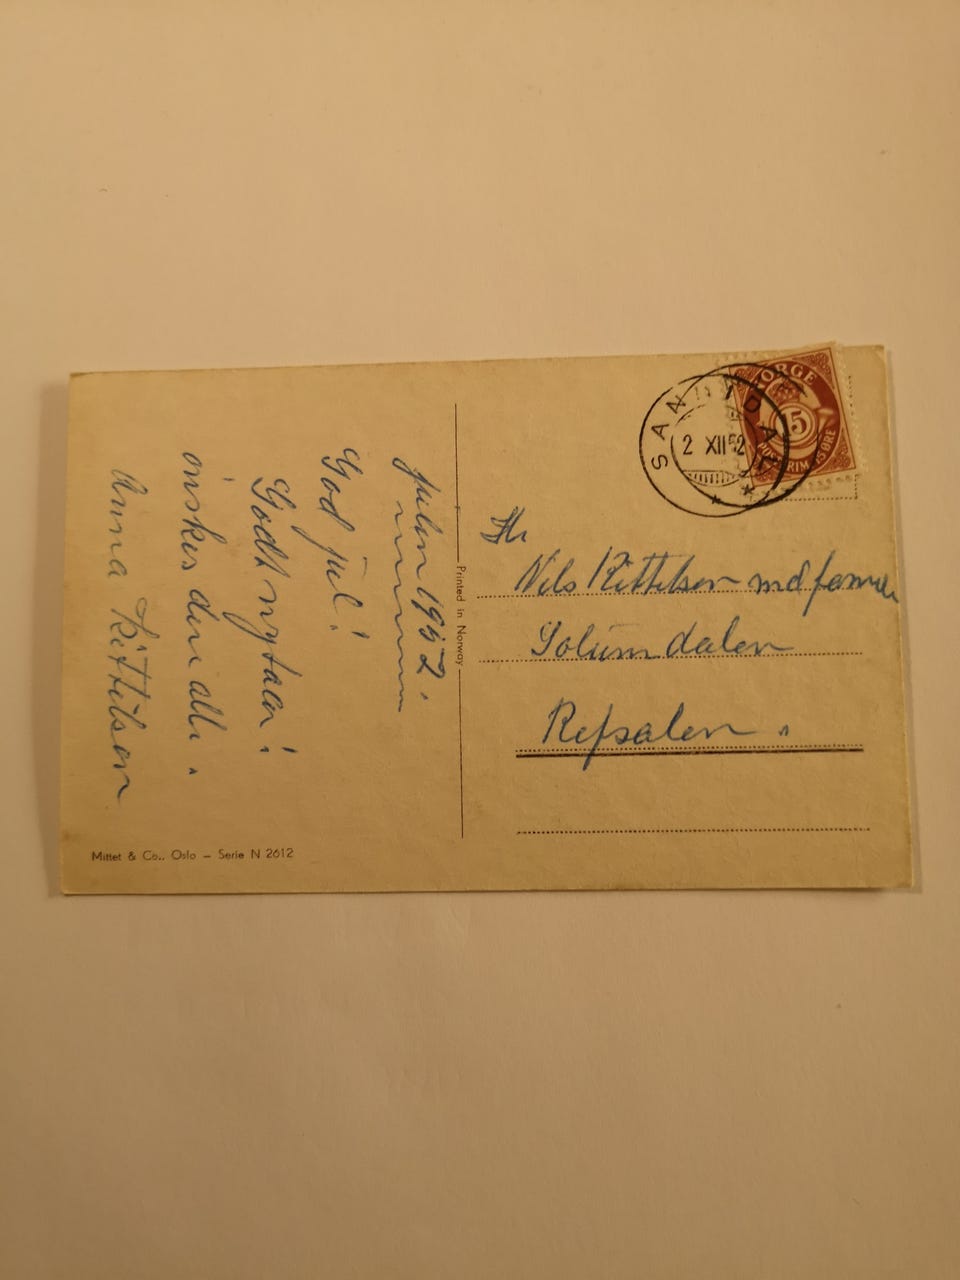 Julen 1952.
God jul!
Godt nyttaar!
önskes dere alle.
Anna Kittilsen
Mittet & Co., Oslo – Serie N 2612
Printed in Norway
NORGE
15
POSTFRIM. 15 ØRE
SANNIDAL
2 XII 52
Hr
Nils Kittilsen med familie
Solum dalen
Refsalen.